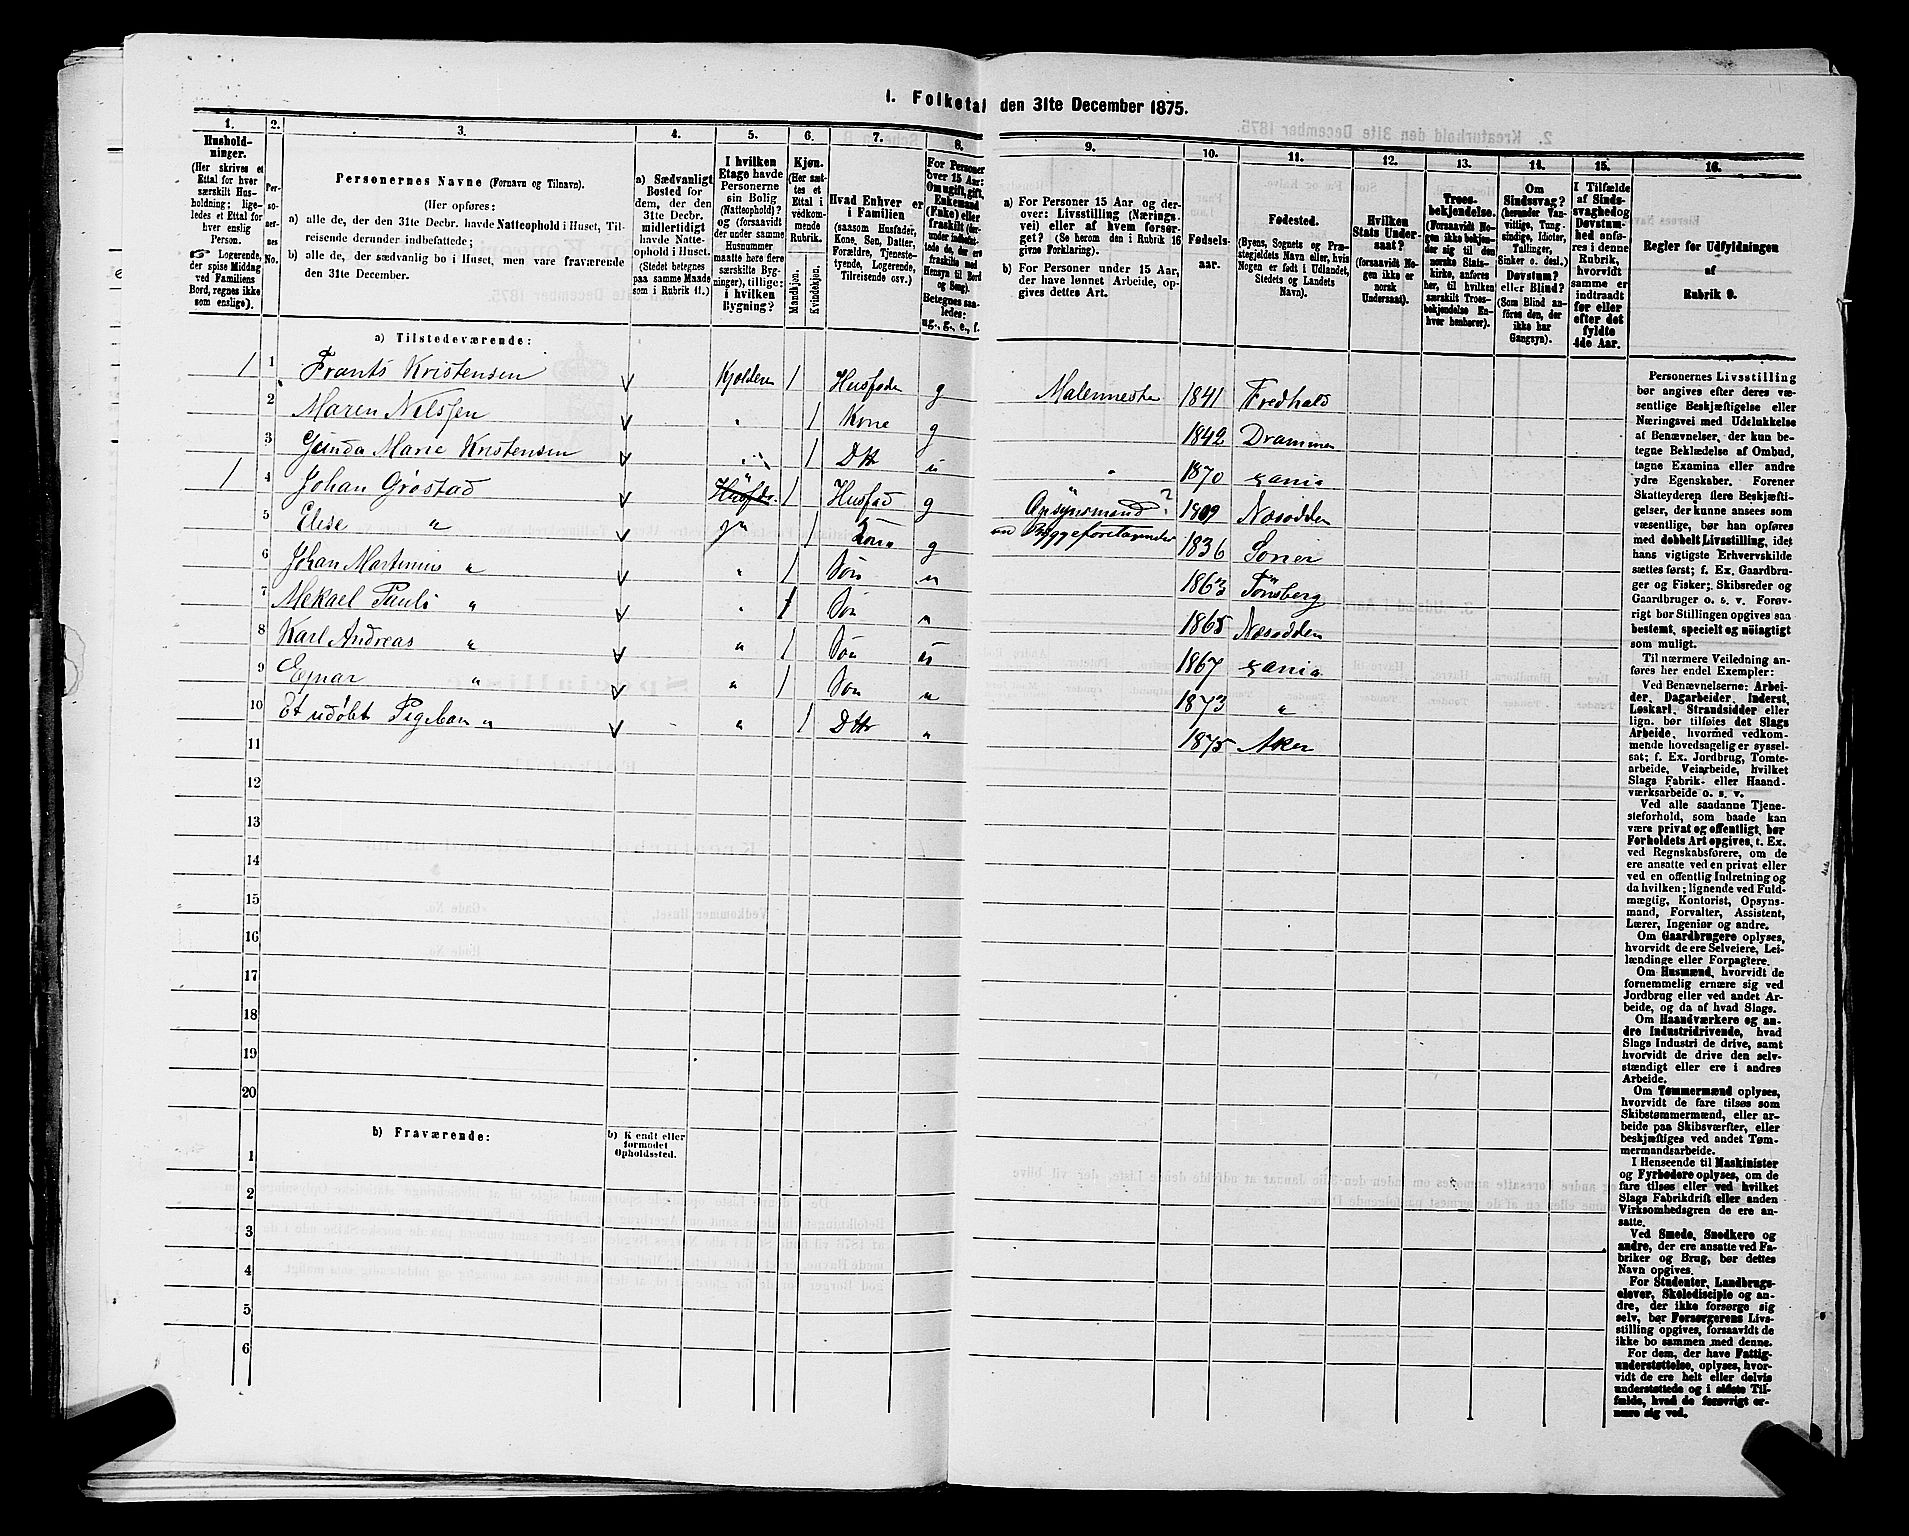 1. Folketal den 31te December 1875.
1. 2. 3. 4. 5. 6. 7. 8. 9. 10. 11. 12. 13. 14. 15. 16.
Hushold-
ninger.
(Her skrives et
Ettal for hver
særskilt Hus-
holdning; lige-
ledes et Ettal for
hver enslig
Person.
Logerende,
der spise Middag
ved Familiens
Bord, regnes ikke
som enslige).
Per-
so-
ner-
nes
No.
Personernes Navne (Fornavn og Tilnavn).
(Her opføres:
a) alle de, der den 31te Decbr. havde Natteophold i Huset, Til-
reisende derunder indbefattede;
b) alle de, der sædvanlig bo i Huset, men vare fraværende
den 31te December.
a) Sædvanligt
Bosted for
dem, der den
31te Decbr.
midlertidigt
havde Natte-
ophold i Huset.
(Stedet betegnes
paa samme Maade
som i Rubrik 11.)
I hvilken
Etage havde
Personerne
sin Bolig
(Natteophold)?
og (forsaavidt
der under samme
Husnummer
maatte høre flere
særskilte Byg-
ninger), tillige:
i hvilken
Bygning?
Kjøn.
(Her sæt-
tes et
Ettal i
vedkom-
mende
Rubrik.
Mandkjøn.
Kvindekjøn.
Hvad Enhver er
i Familien
(saasom Husfader,
Kone, Søn, Datter,
Forældre, Tjeneste-
tyende, Logerende,
Tilreisende osv.)
For Personer
over 15 Aar:
Om ugift, gift,
Enkemand
(Enke) eller
fraskilt (der-
under indbefat-
tede, de der ere
fraskilte med
Hensyn til Bord
og Seng).
Betegnes saa-
ledes:
ug., g., e., f.
a) For Personer 15 Aar og der-
over: Livsstilling (Nærings-
vei) eller af hvem forsør-
get? (Se herom den i Rubrik 16
givne Forklaring).
b) For Personer under 15 Aar,
der have lønnet Arbeide, op-
gives dettes Art.
Fødsels-
aar.
Fødested.
(Byens, Sognets og Præ-
stegjeldets Navn eller, hvis
Nogen er født i Udlandet,
Stedets og Landets
Navn).
Hvilken
Stats Under-
saat?
(forsaavidt No-
gen ikke er
norsk
Undersaat).
Troes-
bekjendelse.
(Forsaavidt No-
gen ikke bekjen-
der sig til den
norske Stats-
kirke, anføres
her, til hvilken
særskilt Troes-
bekjendelse En-
hver henhører).
Om
Sindssvag?
(herunder Van-
vittige, Tung-
sindige, Idioter,
Tullinger,
Sinker o. desl.)
Døvstum?
eller Blind?
(Som Blind an-
føres den, der
ikke har
Gangsyn).
I Tilfælde
af Sinds-
svaghed og
Døvstum-
hed anfø-
res i denne
Rubrik,
hvorvidt
samme er
indtraadt
før eller
efter det
fyldte
4de Aar.
Regler for Udfyldningen
af
Rubrik 9.
a) Tilstedeværende:
1 1 Frants Kristensen Kjolderen 1 Husfader g Malermester 1841 Fredhald
2 Maren Nilssen " 1 Kone g 1842 Drammen
3 Gunda Marie Kristensen " 1 Dtr u 1870 Xania
1 4 Johan Grøstad Husfdr. 1 Husfad g Opsynsmand ? 1809 Næsodden
5 Elise " 1 Kone g Byggeforetagender 1836
6 Johan Martinius " " 1 Søn u 1863 Tønsberg
7 Mekael Pauli " " 1 Søn u 1865 Næsodden
8 Karl Andreas " " 1 Søn u 1867 Xania
9 Ejnar " " 1 Søn u 1873 "
10 Et udøbt Pigebarn " " 1 Dtr " 1875 Aker
11
12
13
14
15
16
17
18
19
20
b) Fraværende:
b) Kendt eller
formodet
Opholdssted.
1
2
3
4
5
6
Personernes Livsstilling
bør angives efter deres væ-
sentlige Beskjæftigelse eller
Næringsvei med Udelukkelse
af Benævnelser, der kun be-
tegne Beklædelse af Ombud,
tagne Examina eller andre
ydre Egenskaber. Forener
Skatteyderen flere Beskjæfti-
gelser, der kunne ansees som
væsentlige, bør han opføres
med dobbelt Livsstilling, idet
hans vigtigste Erhvervskilde
sættes først; f. Ex. Gaardbru-
ger og Fisker; Skibsreder og
Gaardbruger o. s. v. Forøv-
rigt bør Stillingen opgives saa
bestemt, specielt og nøiagtigt
som muligt.
Til nærmere Veiledning an-
føres her endel Exempler:
Ved Benævnelserne: Arbei-
der, Dagarbeider, Inderst,
Løskarl, Strandsidder eller
lign. bør tilføies det Slags
Arbeide, hvormed vedkom-
mende hovedsagelig er syssel-
sat; f. Ex. Jordbrug, Tomte-
arbeide, Veiarbeide, hvilket
Slags Fabrik- eller Haand-
værksarbeide o. s. v.
Ved alle saadanne Tjene-
steforhold, som baade kan
være privat og offentligt, bør
Forholdets Art opgives, t. Ex.
ved Regnskabsførere, om de
ere ansatte ved en privat eller
ved en offentlig Indretning og
da hvilken; lignende ved Fuld-
mægtig, Kontorist, Opsyns-
mand, Forvalter, Assistent,
Lærer, Ingeniør og andre.
Om Gaardbrugere oplyses,
hvorvidt de ere Selveiere, Lei-
lændinge eller Forpagtere.
Om Husmænd, hvorvidt de
fornemmelig ernære sig ved
Jordbrug eller ved andet Ar-
beide, og da af hvad Slags.
Om Haandværkere og an-
dre Industridrivende, hvad
Slags Industri de drive, samt
hvorvidt de drive den selv-
stændigt eller ere i andres
Arbeide.
Om Tømmermænd oplyses,
hvorvidt de fare tilsøs som
Skibstømmermænd, eller ar-
beide paa Skibsværfter, eller
beskjæftiges ved andet Tøm-
mermandsarbeide.
I Henseende til Maskinister
og Fyrbødere oplyses, om de
fare tilsøs eller ved hvilket
Slags Fabrikdrift eller anden
Virksomhedsgren de ere an-
satte.
Ved Smede, Snedkere og
andre, der ere ansatte ved Fa-
briker og Brug, bør dettes
Navn opgives.
For Studenter, Landbrugs-
elever, Skoledisciple og an-
dre, der ikke forsørge sig
selv, bør Forsørgerens Livs-
stilling opgives, forsaavidt de
ikke bo sammen med denne.
For dem, der have Fattig-
understøttelse, oplyses, hvor-
vidt de ere helt eller delvis
understøttede og i sidste Til-
fælde, hvad de forøvrigt er-
nære sig ved.